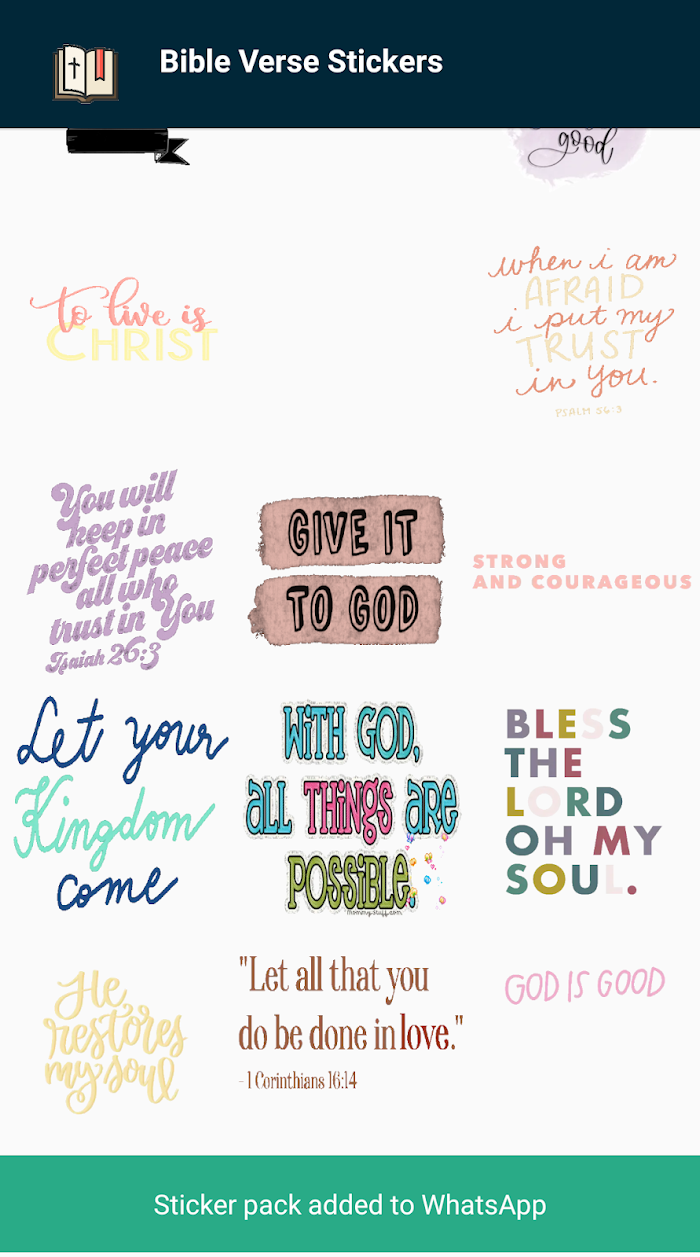 Bible Verse Stickers
good
to live is
CHRIST
when i am
AFRAID
i put my
TRUST
in you.
PSALM 56:3
You will
keep in
perfect peace
all who
trust in You
Isaiah 26:3
GIVE IT
TO GOD
STRONG
AND COURAGEOUS
Let your
Kingdom
come
WiTH GOD,
ALL THiNGS ARE
POSSiBLE.
MommyStuff.com
BLESS
THE
LORD
OH MY
SOUL.
He
restores
my soul
"Let all that you
do be done in love."
- 1 Corinthians 16:14
GOD IS GOOD
Sticker pack added to WhatsApp